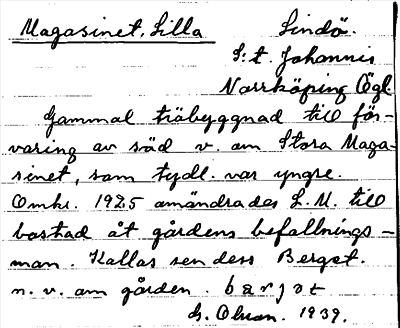 Magasinet, Lilla Lindö.
S:t. Johannis
Norrköping Ögl.
Gammal träbyggnad till för-
varing av säd v. om Stora Maga-
sinet, som tydl. var yngre.
Omkr. 1925 omändrades L. M. till
bostad åt gårdens befallnings-
man. Kallas sen dess Berget.
n. v. om gården. bärjət
G. Olson. 1939.